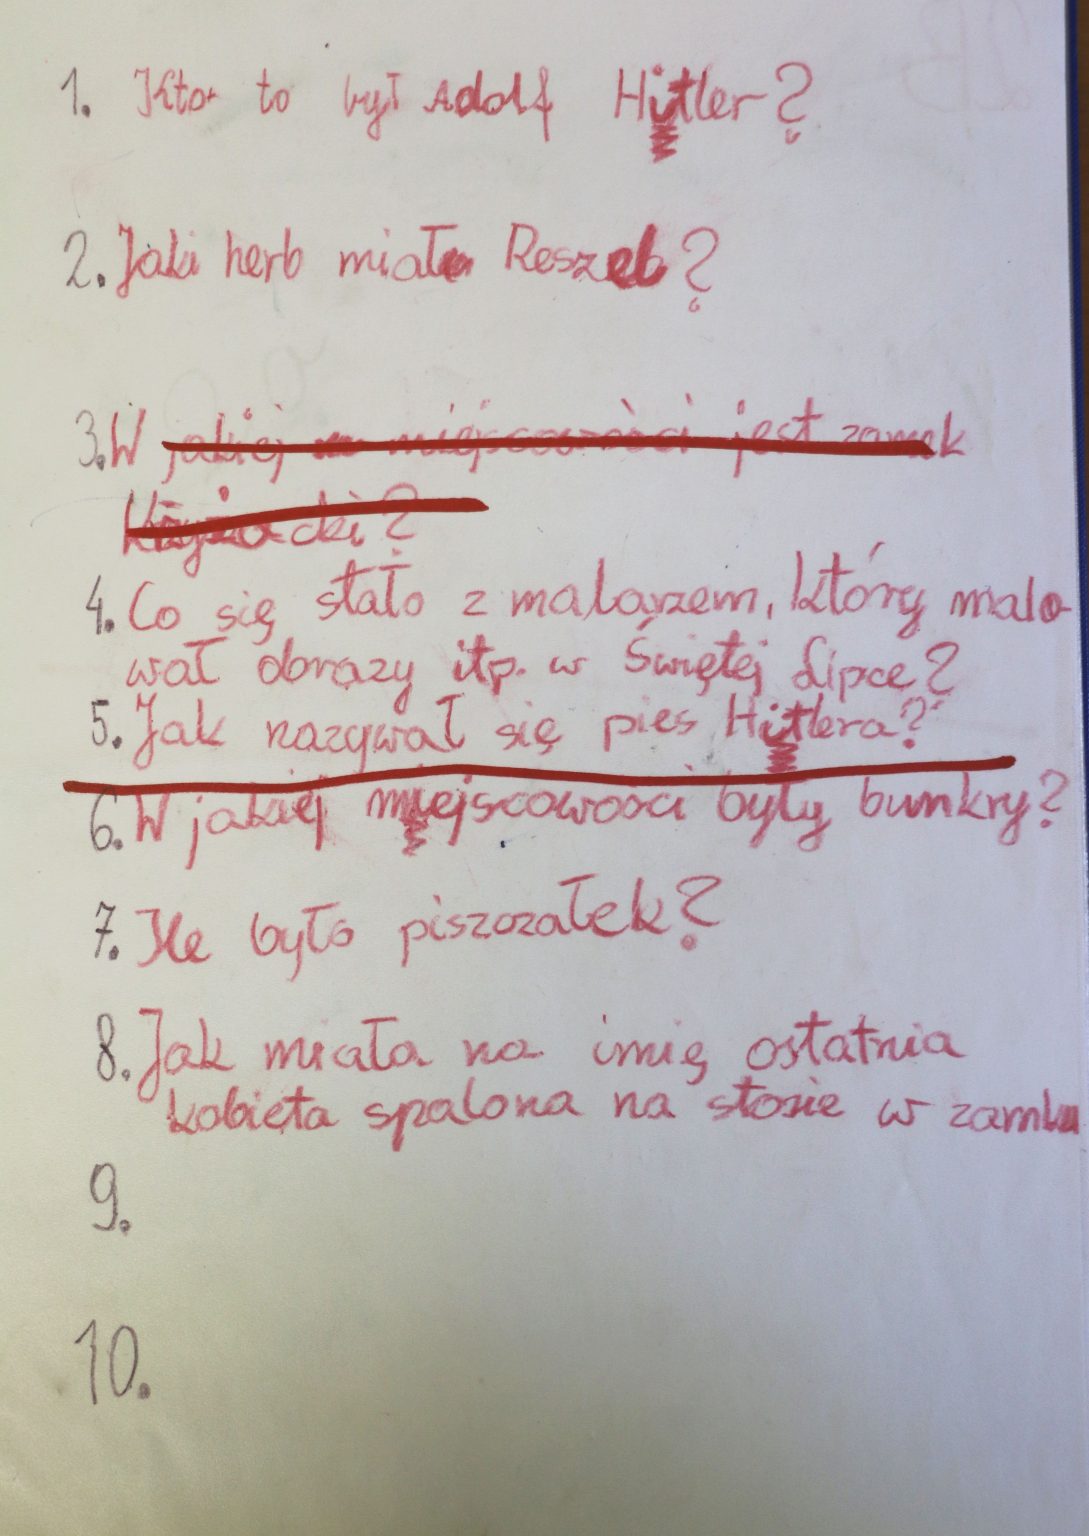 1. Kto to był Adolf Hitler?
2. Jaki herb miał Reszel?
3. W jakiej miejscowości jest zamek
krzyżacki?
4. Co się stało z malarzem, który malo-
wał obrazy itp. w Świętej Lipce?
5. Jak nazywał się pies Hitlera?
6. W jakiej miejscowości były bunkry?
7. Ile było piszczałek?
8. Jak miała na imię ostatnia
kobieta spalona na stosie w zamku
9.
10.